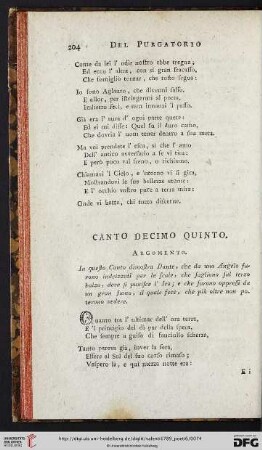 204 DEL PURGATORIO
Come da lei l' udir nostro ebbe tregua;
Ed ecco l' altra, con sì gran fracasso,
Che somigliò tonar, che tosto segua:
Io sono Aglauro, che divenni sasso.
E allor, per istringermi al poeta,
Indietro feci, e non innanzi 'l passo.
Già era l' aura d' ogni parte queta:
Ed ei mi disse: Quel fu il duro camo,
Che dovria l' uom tener dentro a sua meta.
Ma voi prendete l' esca, sì che l' amo
Dell' antico avversario a sè vi tira:
E però poco val freno, o richiamo.
Chiamavi 'l Cielo, e 'ntorno vi si gira,
Mostrandovi le sue bellezze eterne:
E l' occhio vostro pure a terra mira:
Onde vi batte, chi tutto discerne.
CANTO DECIMO QUINTO.
ARGOMENTO.
In questo Canto dimostra Dante, che da uno Angelo fu-
rono indirizzati per le scale, che sagliono sul terzo
balzo; dove si punisce l' Ira; e che furono oppressi da
un gran fumo, il quale fece, che più oltre non po-
terono vedere.
Quanto tra l' ultimar dell' ora terza,
E 'l principio del dì par della spera,
Che sempre a guisa di fanciullo scherza,
Tanto pareva già, inver la sera,
Essere al Sol del suo corso rimaso;
Vespero là, e qui mezza notte era:
E i
UNIVERSITÄTS-BIBLIOTHEK HEIDELBERG
© Universitätsbibliothek Heidelberg
DFG